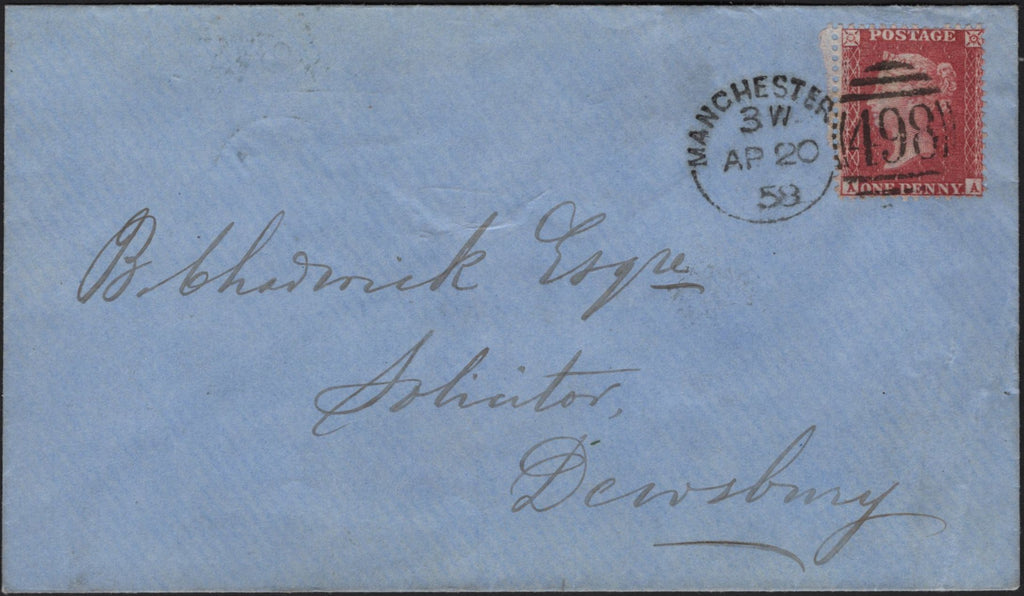 POSTAGE
MANCHESTER
3W
AP 20
58
498
A ONE PENNY A
B. Chadwick Esqre
Solicitor,
Dewsbury